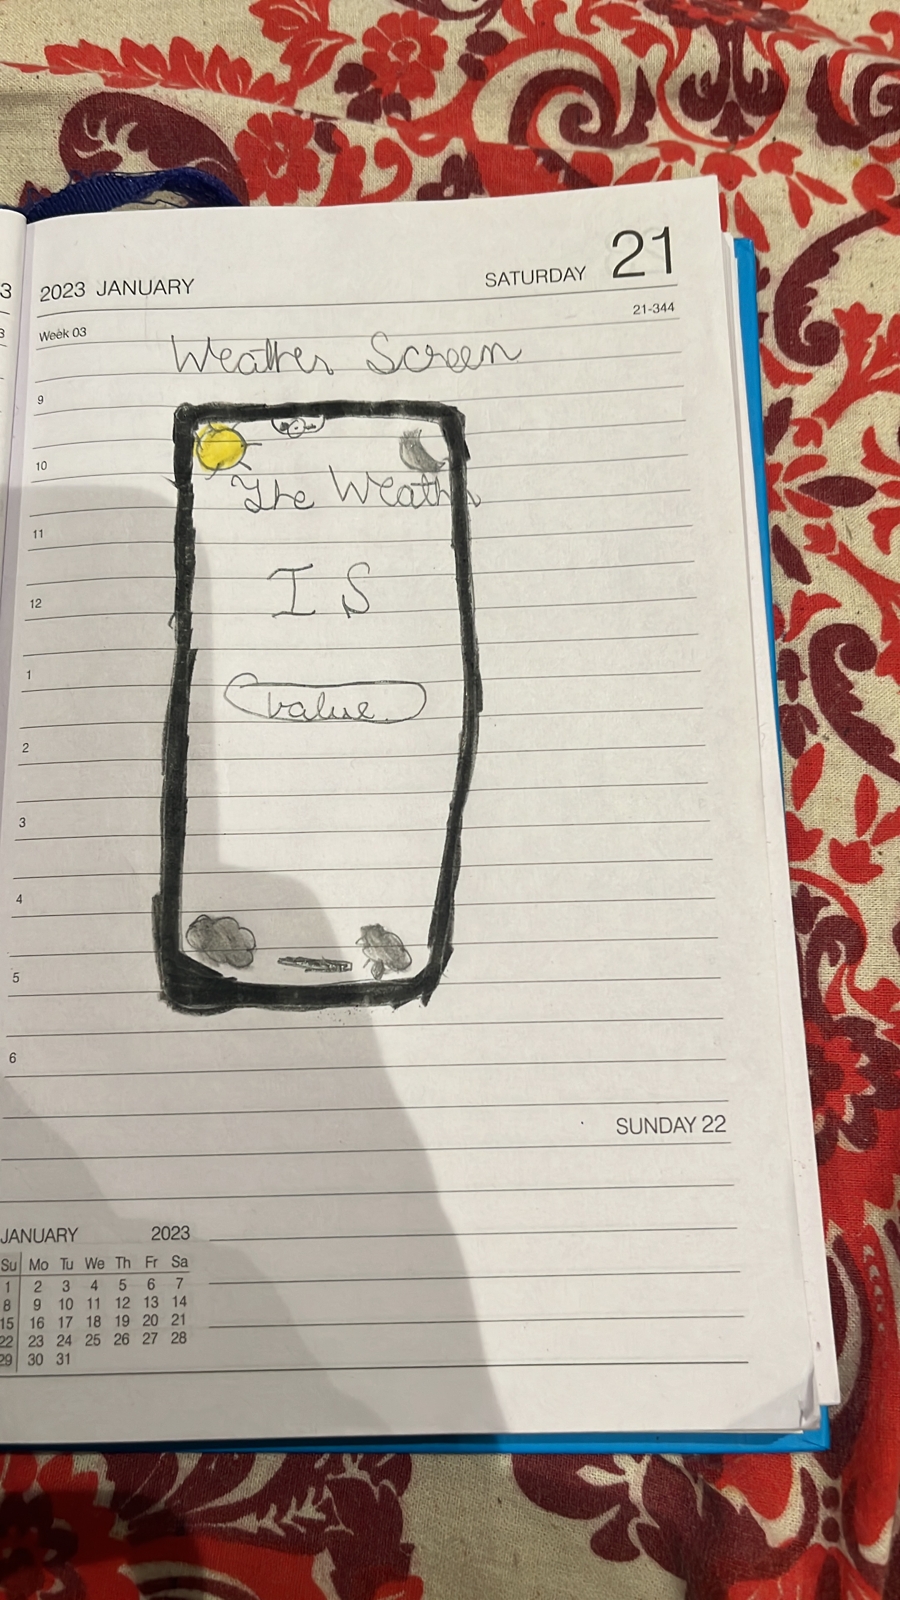 3
2023 JANUARY
SATURDAY 21
3
Week 03
21-344
Weather Screen
9
10
The Weather
11
IS
12
1
value
2
3
4
5
6
SUNDAY 22
JANUARY 2023
Su Mo Tu We Th Fr Sa
1 2 3 4 5 6 7
8 9 10 11 12 13 14
15 16 17 18 19 20 21
22 23 24 25 26 27 28
29 30 31